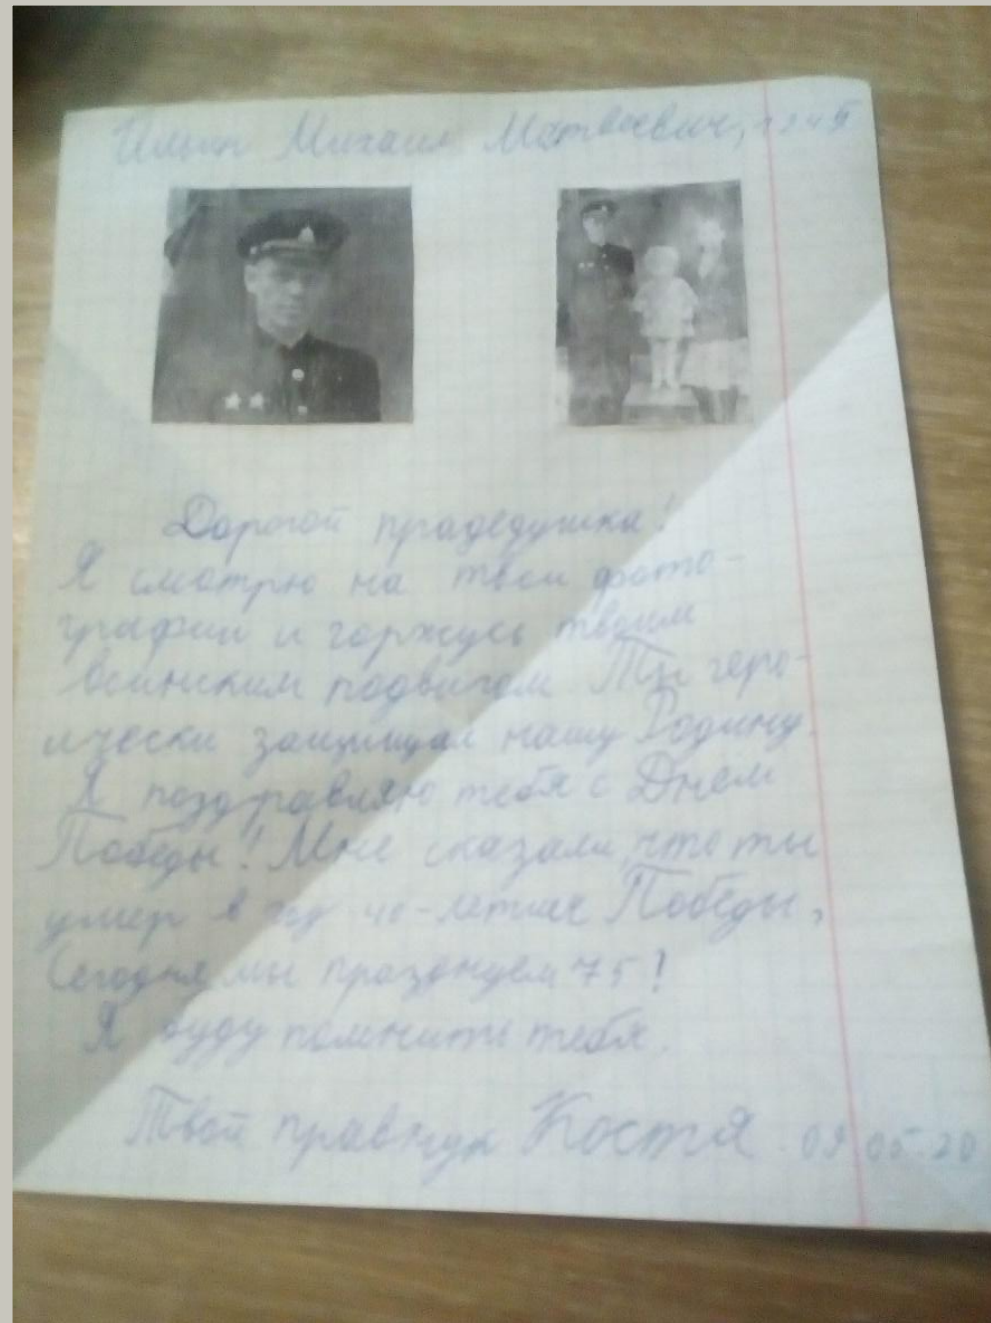 Ильин Михаил Матвеевич,
Дорогой прадедушка!
Я смотрю на твои фото-
графии и горжусь твоим
воинским подвигом Ты геро-
ически защищал нашу Родину.
Я поздравляю тебя с Днем
Победы! Мне сказали, что ты
умер в год 40-летия Победы,
Сегодня мы празднуем 75!
Я буду помнить тебя.
Твой правнук Костя 09.05.20